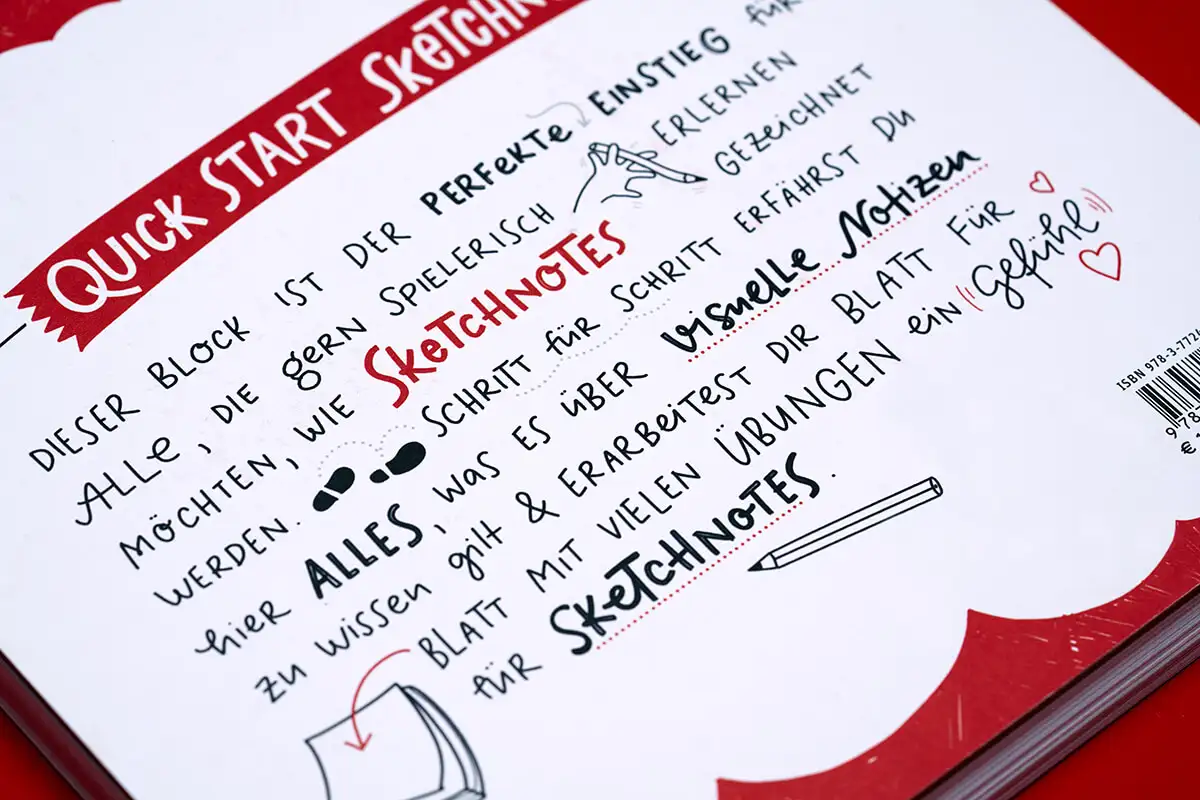 QUICK START SKETCHN
DIESER BLOCK IST DER PERFEKTE EINSTIEG für
ALLE, DIE gern SPIELERISCH ERLERNEN
MÖCHTEN, WIE SKETCHNOTES GEZEICHNET
WERDEN. SCHRITT für SCHRITT ERFÄHRST DU
hier ALLES, was ES ÜBER visuelle Notizen
zu wissen gilt & ERARBEITEST DIR BLATT FÜR
BLATT MIT VIELEN ÜBUNGEN ein Gefühl
für SKETCHNOTES.
ISBN 978-3-772
978
€